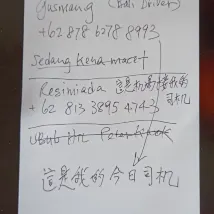 Gusmang (Bali Driver)
+62 878 6278 8993
Sedang kena macet
Resmiada 这是机场接我的司机
+62 813 3895 4743
Ubud
这是我的今日司机